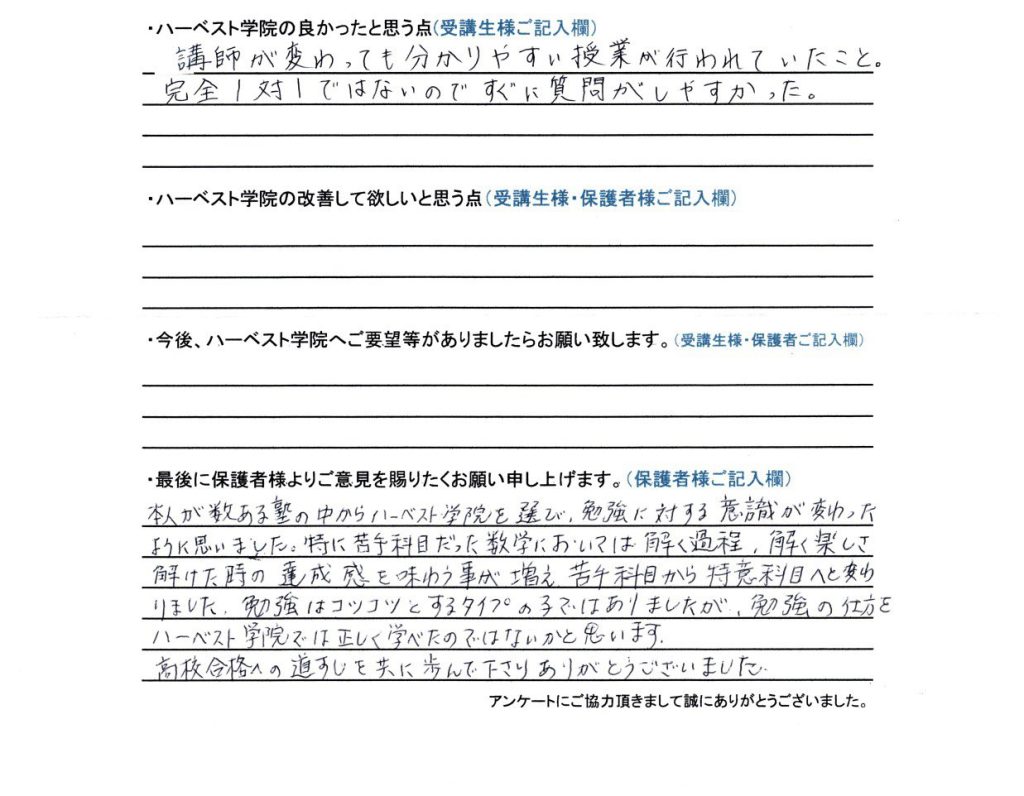 ・ハーベスト学院の良かったと思う点(受講生様ご記入欄)
講師が変わっても分かりやすい授業が行われていたこと。
完全1対1ではないのですぐに質問がしやすかった。
・ハーベスト学院の改善して欲しいと思う点(受講生様・保護者様ご記入欄)
・今後、ハーベスト学院へご要望等がありましたらお願い致します。(受講生様・保護者ご記入欄)
・最後に保護者様よりご意見を賜りたくお願い申し上げます。(保護者様ご記入欄)
本人が数ある塾の中からハーベスト学院を選び、勉強に対する意識が変わった
ように思いました。特に苦手科目だった数学においては解く過程、解く楽しさ
解けた時の達成感を味わう事が増え、苦手科目から特意科目へと変わ
りました。勉強はコツコツとするタイプの子ではありましたが、勉強の仕方を
ハーベスト学院では正しく学べたのではないかと思います。
高校合格への道すじを共に歩んで下さりありがとうございました。
アンケートにご協力頂きまして誠にありがとうございました。